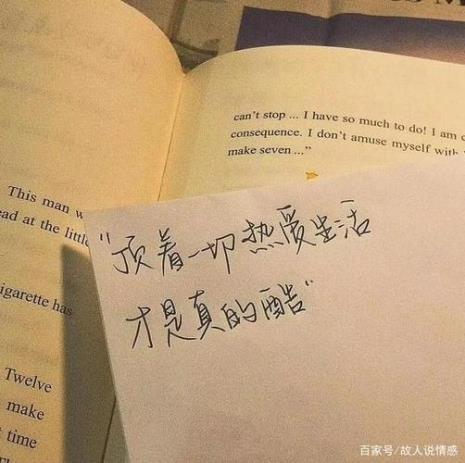 can't stop ... I have so much to do! I am
consequence. I don't amuse myself with
make seven ..."
This man
ead at the little
igarette has
Twelve
make
time
"顶着一切热爱生活
才是真的酷"
百家号/故人说情感